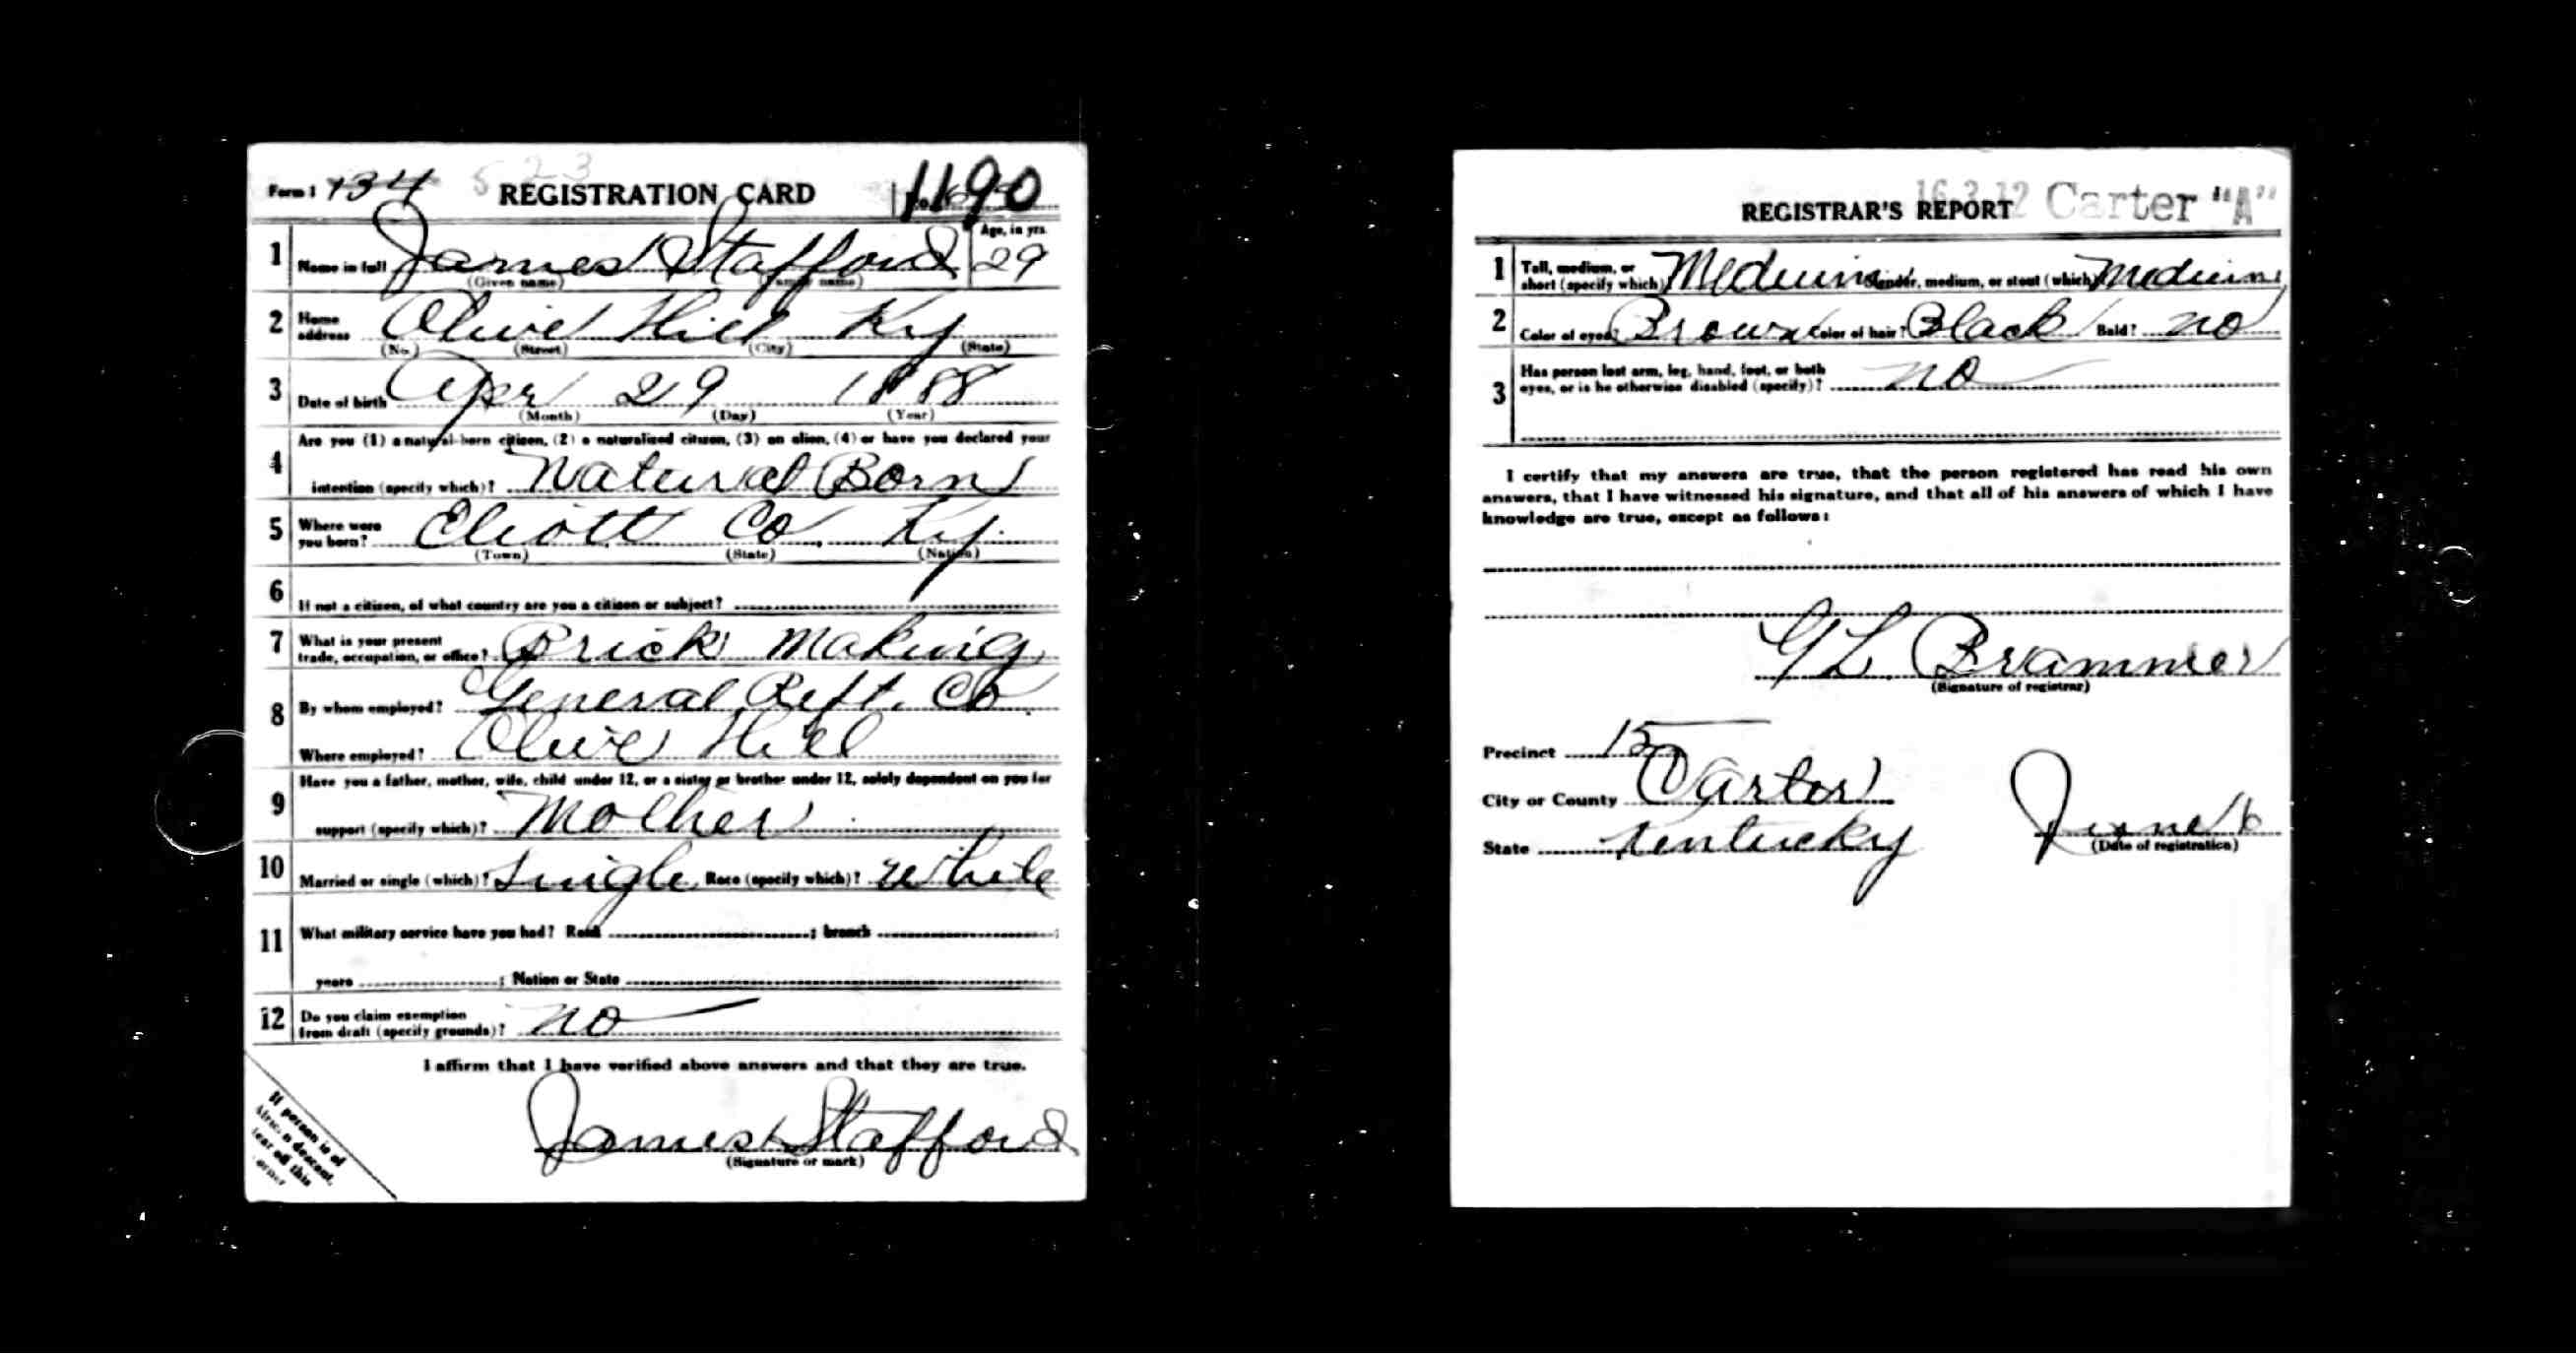 Form 1 734 523 REGISTRATION CARD 1190
1 Name in full James Stafford Age, in yrs. 29
(Given name) (Family name)
2 Home address Olive Hill Ky
(No.) (Street) (City) (State)
3 Date of birth Apr 29 1888
(Month) (Day) (Year)
4 Are you (1) a natural-born citizen, (2) a naturalized citizen, (3) an alien, (4) or have you declared your
intention (specify which)? Natural Born
5 Where were you born? Eliott Co. Ky.
(Town) (State) (Nation)
6 If not a citizen, of what country are you a citizen or subject?
7 What is your present trade, occupation, or office? Brick Making
8 By whom employed? General Reft. Co.
Where employed? Olive Hill
9 Have you a father, mother, wife, child under 12, or a sister or brother under 12, solely dependent on you for
support (specify which)? Mother
10 Married or single (which)? Single Race (specify which)? White
11 What military service have you had? Rank ; branch ;
years ; Nation or State
12 Do you claim exemption from draft (specify grounds)? no
I affirm that I have verified above answers and that they are true.
James Stafford
(Signature or mark)
If person is of
African descent,
tear off this
corner
REGISTRAR'S REPORT 16 3 12 Carter "A"
1 Tall, medium, or short (specify which) Medium Slender, medium, or stout (which) Medium
2 Color of eyes? Brown Color of hair? Black Bald? no
3 Has person lost arm, leg, hand, foot, or both
eyes, or is he otherwise disabled (specify)? no
I certify that my answers are true, that the person registered has read his own
answers, that I have witnessed his signature, and that all of his answers of which I have
knowledge are true, except as follows:
G L Brammer
(Signature of registrar)
Precinct 15
City or County Carter
State Kentucky June
(Date of registration)